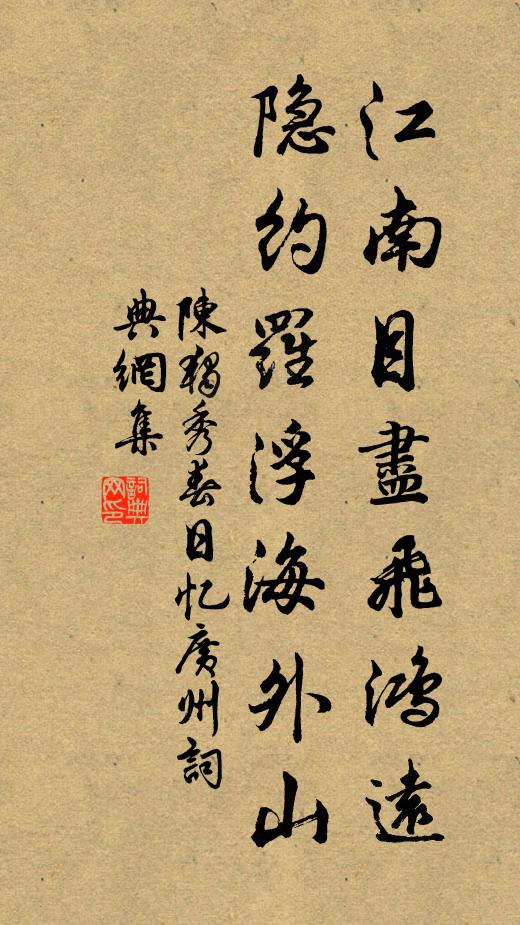 江南目盡飛鴻遠
隐約羅浮海外山
陳獨秀春日忆廣州詞
典網集
詞典網印